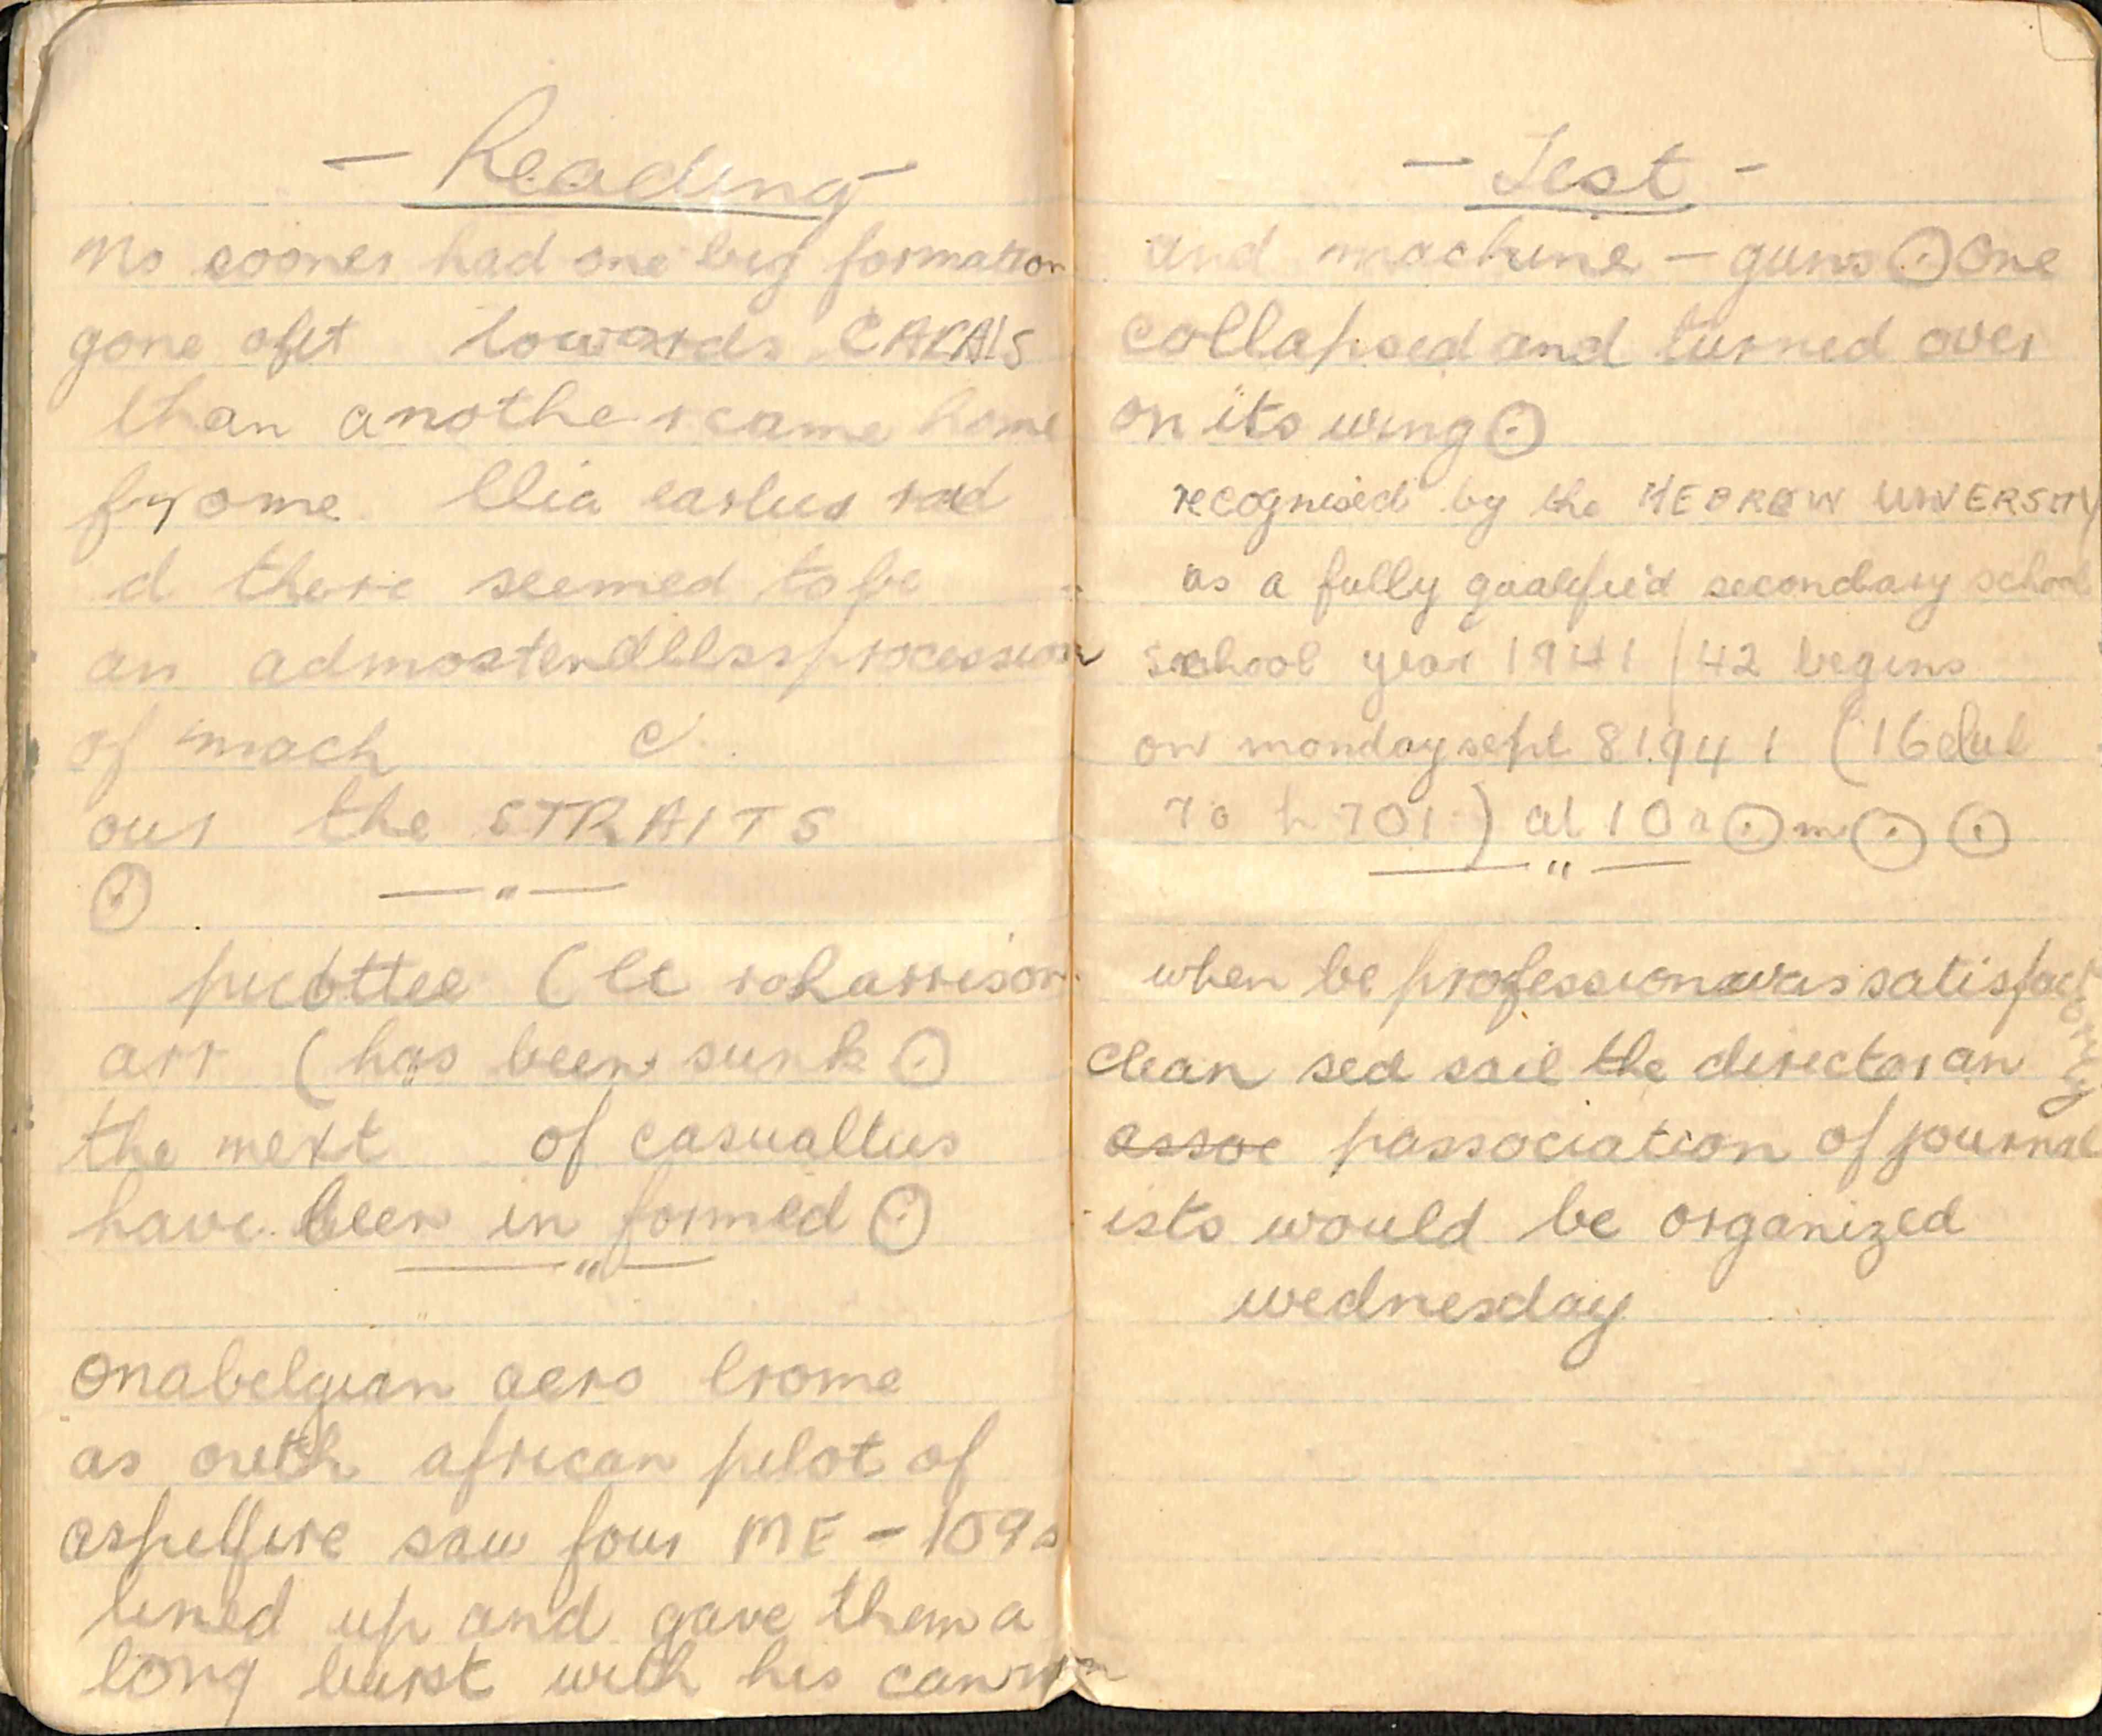 - Reading -
No sooner had one big formation
gone oft towards CALAIS
than anothe r came home
fr ome llia earlies rad
d there seemed to be
an admostendllssprocession
of mach c
our the STRAITS
⊙ — " —
picottee (lt roharrison
arr (has been sunk ⊙
the mext of casualtus
have been in formed ⊙
— " —
onabelgian aero lrome
as outh african pilot of
aspitfire saw four ME - 109s
lined up and gave them a
long burst with his cannon
- Test -
and machine - guns ⊙ one
collapsed and turned over
on its wing ⊙
recognised by the HEBREW UNVERSITY
as a fully qualified secondary school
school year 1941 / 42 begins
on monday sept 8 1941 (16 elul
70 h 701) at 10 a ⊙ m ⊙ ⊙
— " —
when be professionwas satisfactority
clean sed sail the director an
assoc passociation of journal
ists would be organized
wednesday